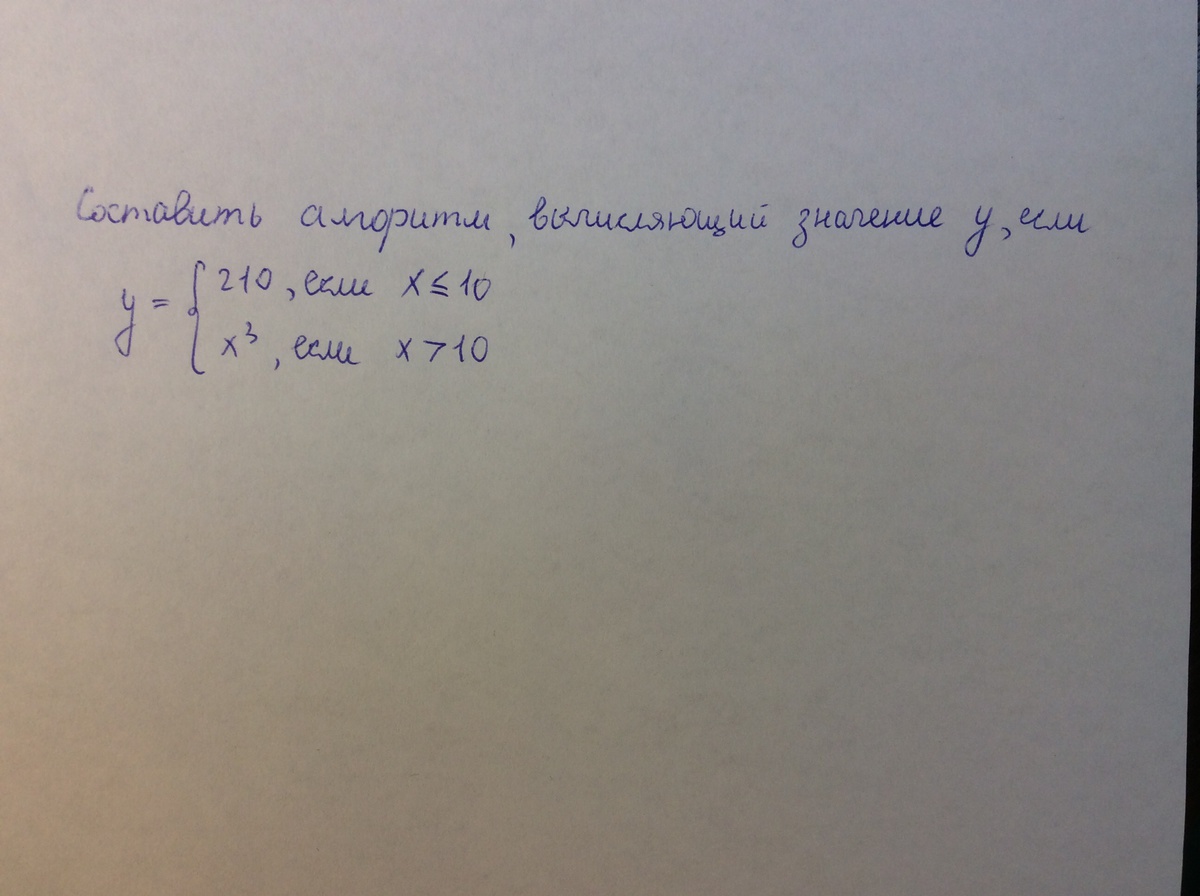 Составить алгоритм, вычисляющий значение y, если
y = { 210, если x ≤ 10
x³, если x > 10